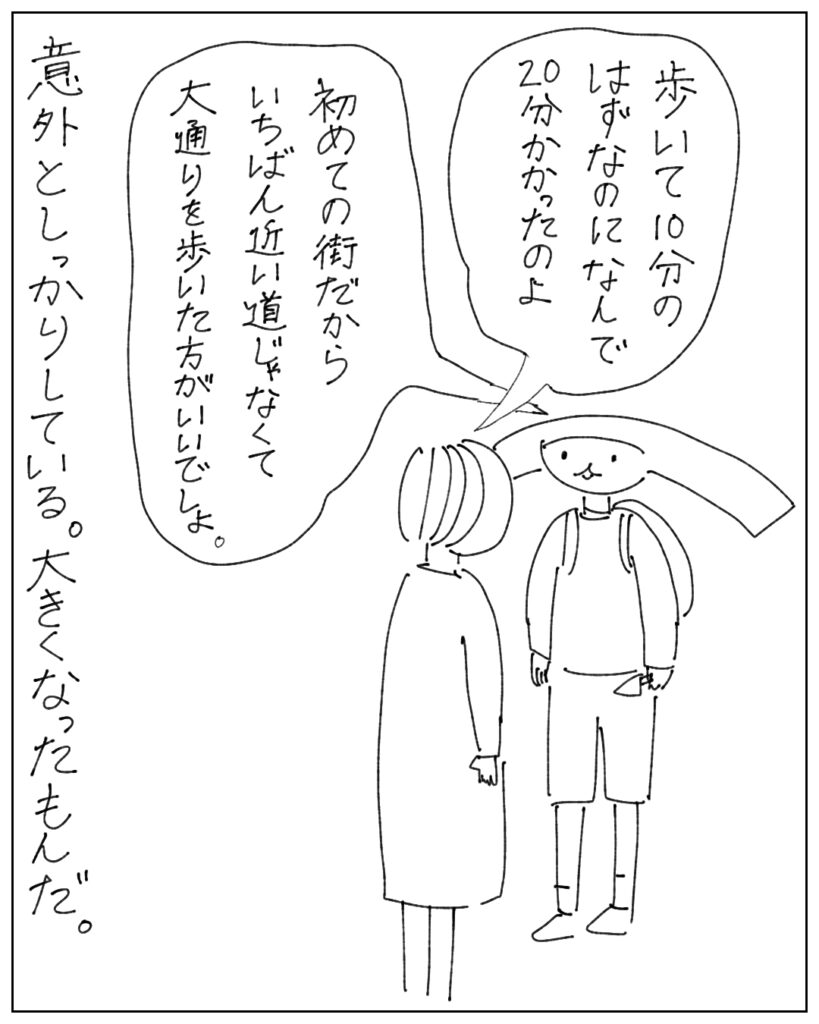 歩いて10分の
はずなのになんで
20分かかったのよ
初めての街だから
いちばん近い道じゃなくて
大通りを歩いた方がいいでしょ。
意外としっかりしている。大きくなったもんだ。